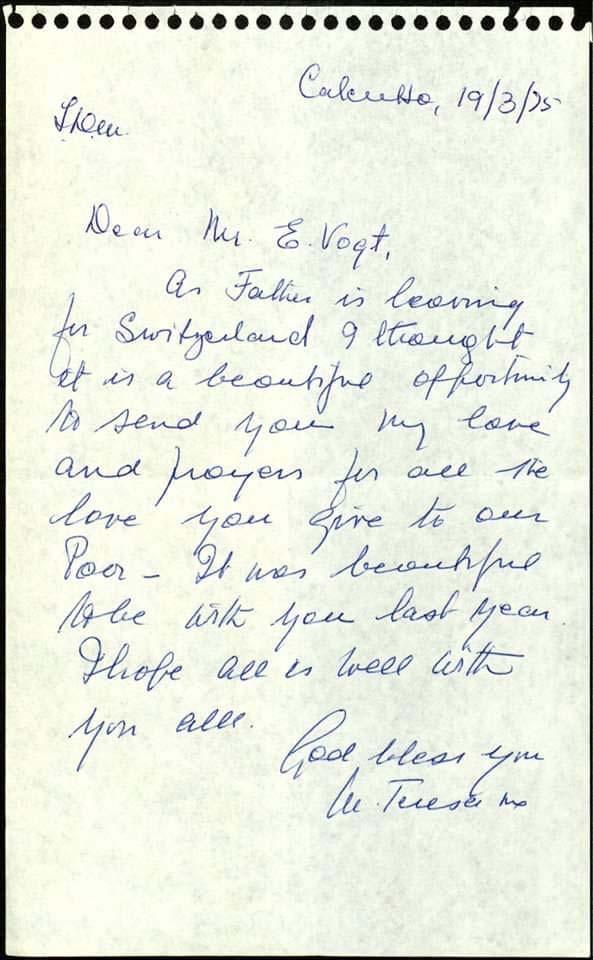 Calcutta, 19/3/75
Dear Mr. E. Vogt,
As Father is leaving
for Switzerland I thought
it is a beautiful opportunity
to send you my love
and prayers for all the
love you give to our
Poor – It was beautiful
to be with you last year.
I hope all is well with
you all.
God bless you
M. Teresa mc